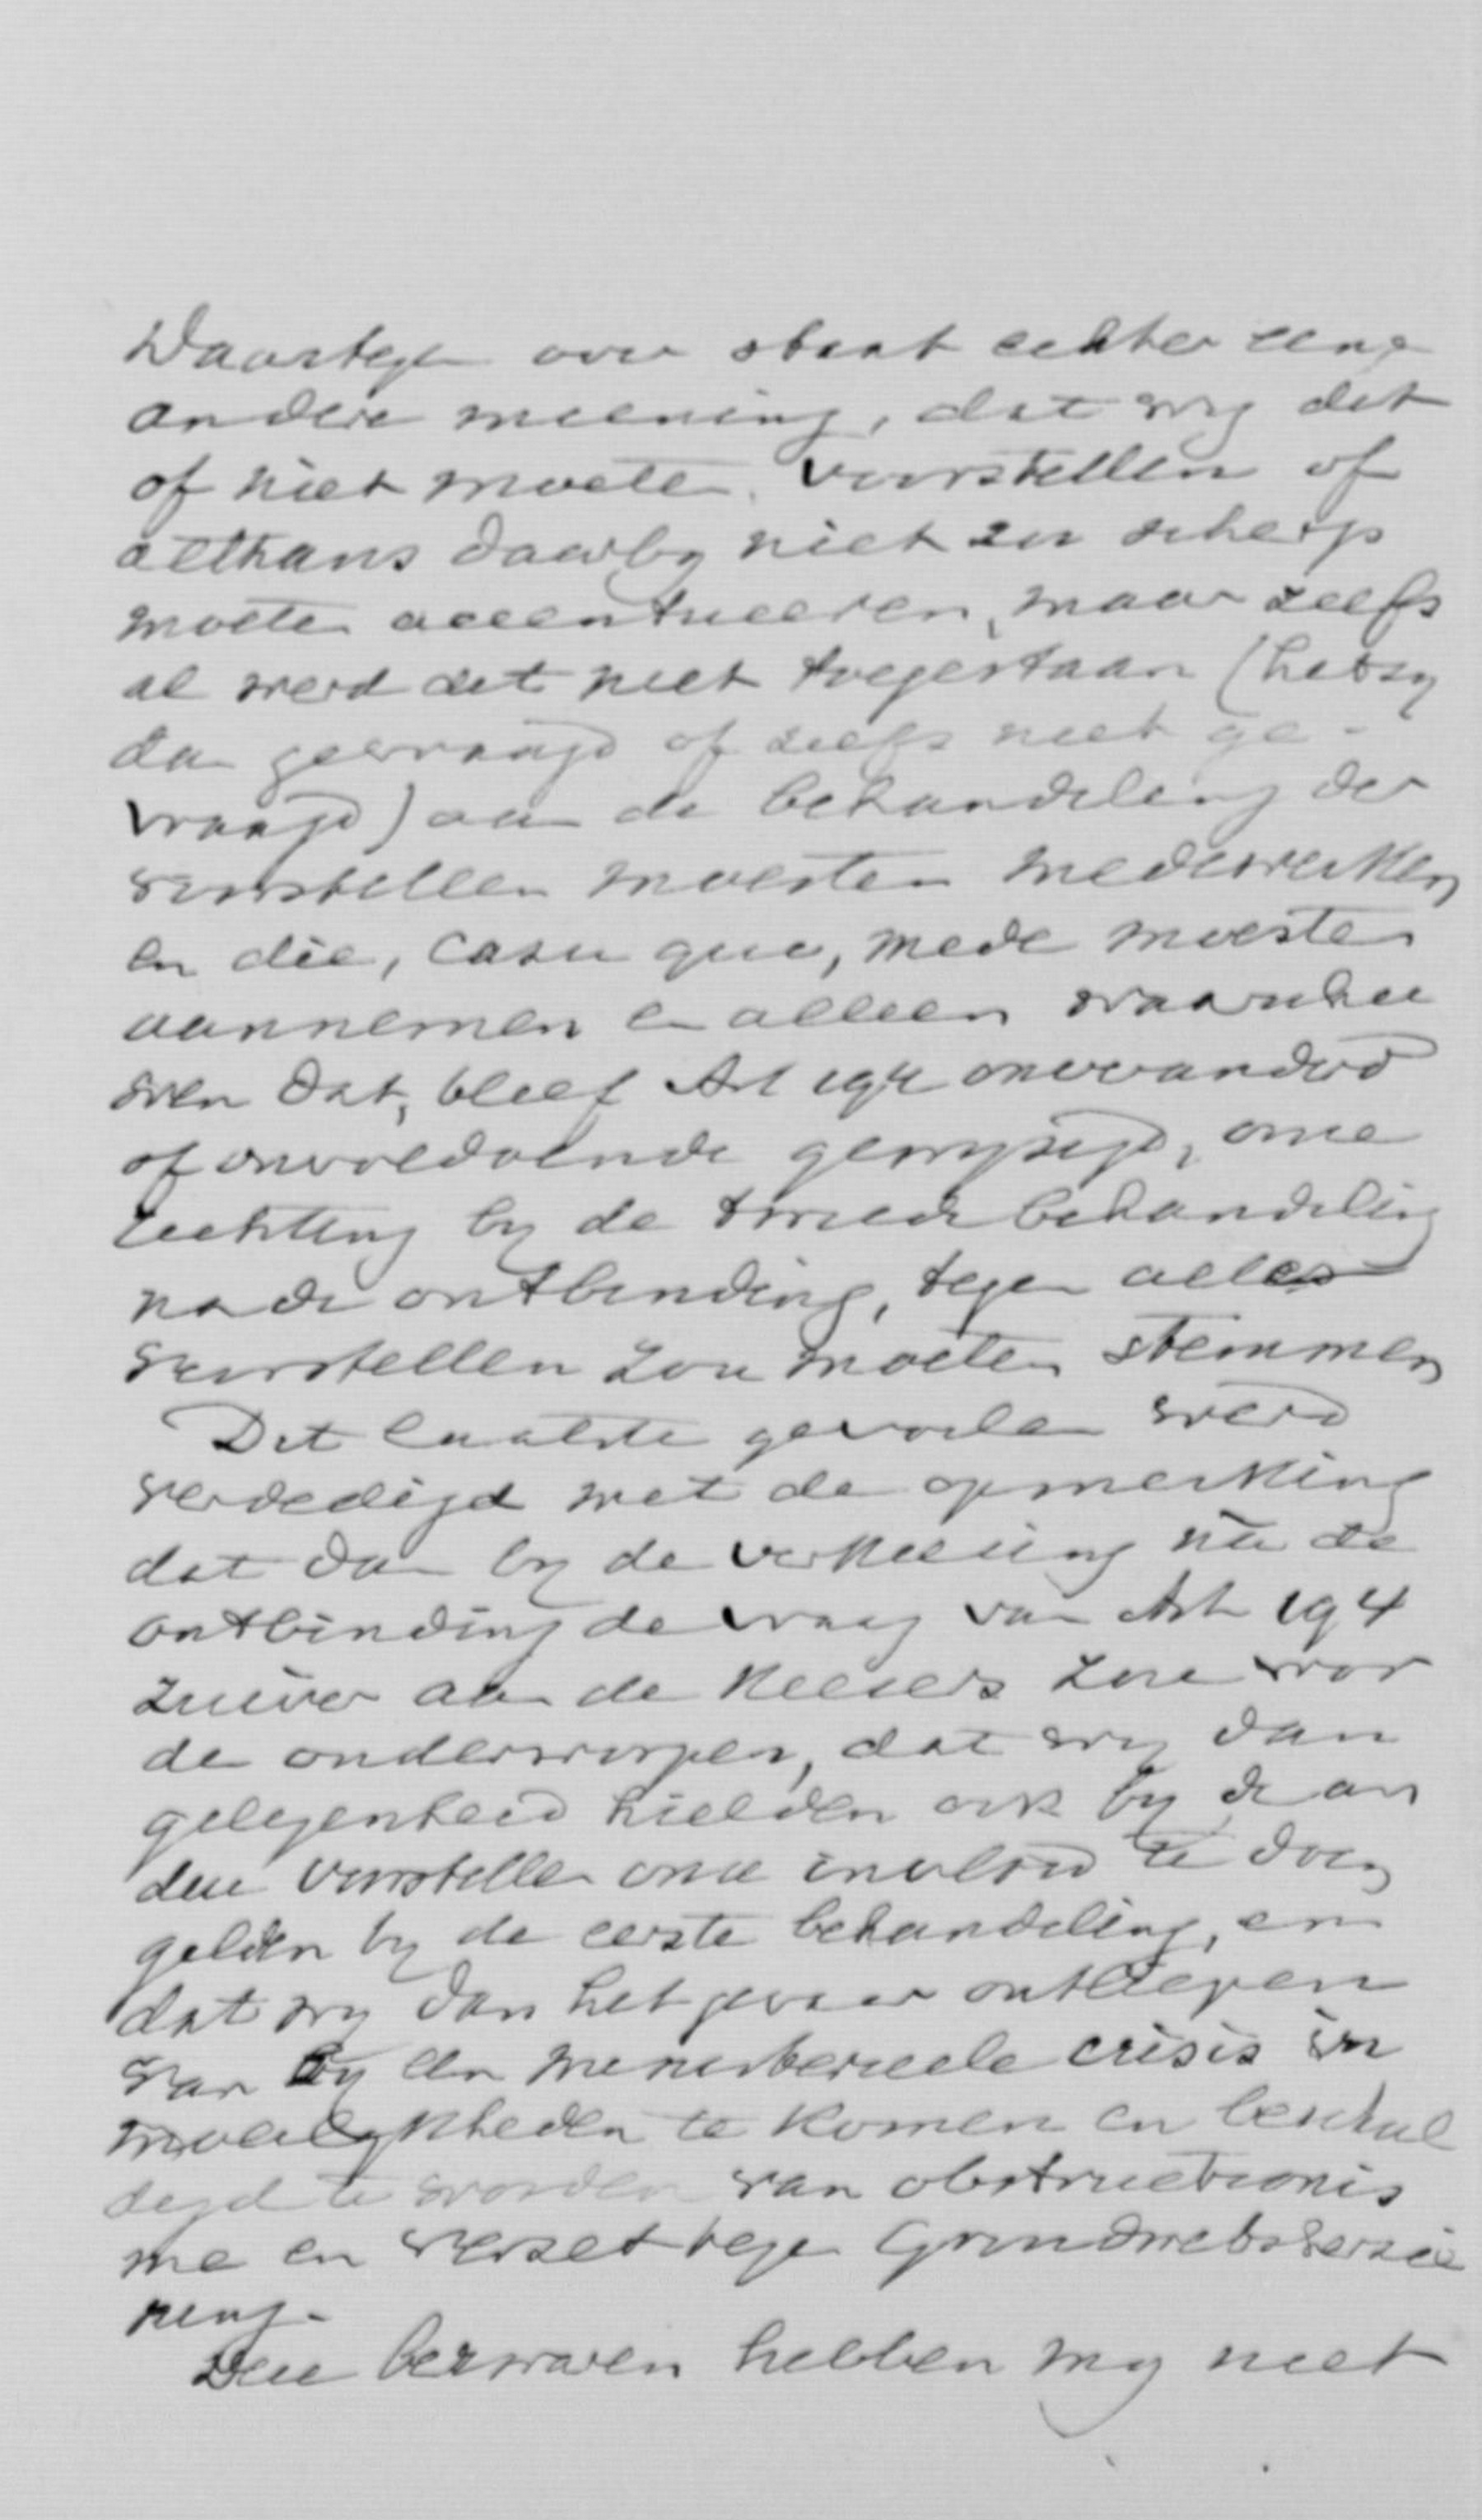 Daartegen over staat echter eene
andere meening, dat wij dit
of niet moeten voorstellen of
althans daarbij niet zoo scherp
moeten accentueeren, maar zelfs
al werd dit niet toegestaan (hetzij
dan gevraagd of zelfs niet ge-
vraagd) aan de behandeling der
voorstellen moesten medewerken
en die, casu quo, mede moesten
aannemen en alleen waarschu
wen dat, bleef Art 194 onveranderd
of onvoldoende gewijzigd, onze
richting bij de tweede behandeling
na de ontbinding, tegen alles
voorstellen zou moeten stemmen
Dit laatste gevoelen werd
verdedigd met de opmerking
dat dan bij de verkiezing na de
ontbinding de vraag van Art 194
zuiver aan de kiezers zou wor
den onderworpen, dat wij dan
gelegenheid hielden ook bij de an
dere voorstellen onze invloed te doen
gelden bij de eerste behandeling, en
dat wij dan het gevaar ontliepen
van bij een ministerieele crisis in
moeielijkheden te komen en beschul
digd te worden van obstructionis
me en verzet tegen Grondwetsherzie
ning.
Deze bezwaren hebben mij niet